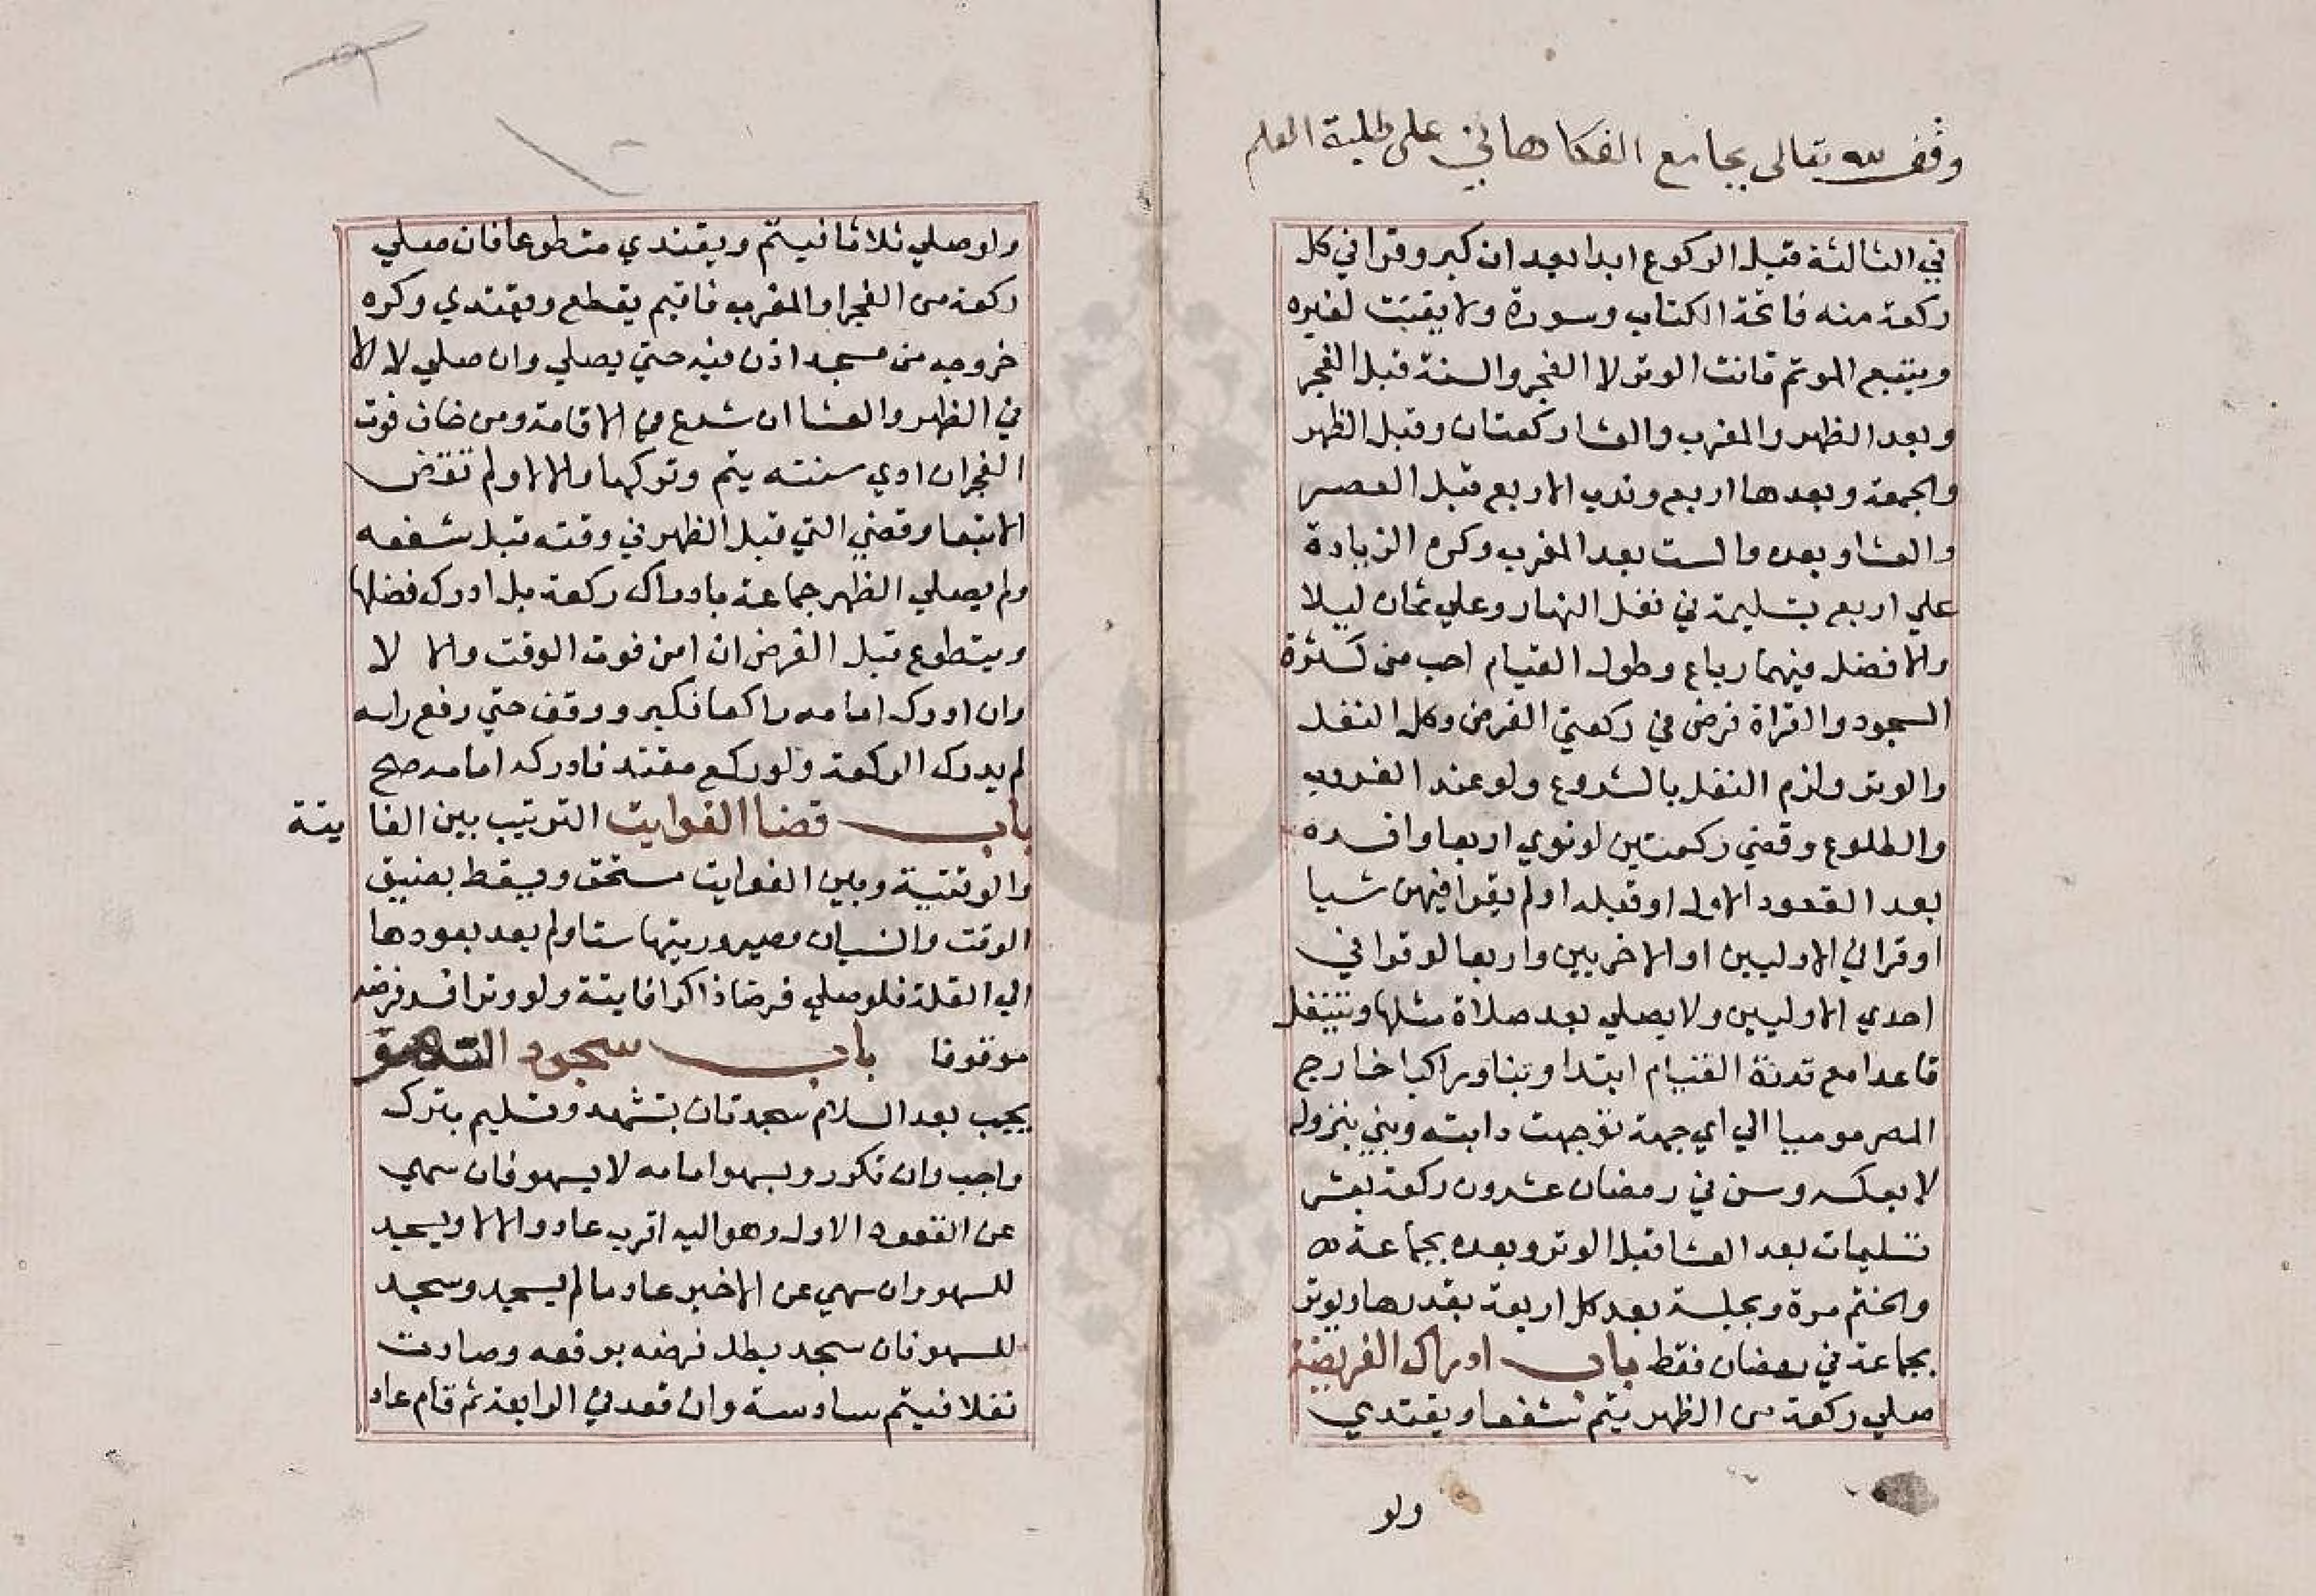 وقف لله تعالى بجامع الفكاهاني على طلبة العلم
في الثالثة قبل الركوع ابدا بعد ان كبر وقرا في كل
ركعة منه فاتحة الكتاب وسورة ولا يقنت لغيره
ويتبع الموتم قانت الوتر لا الفجر والسنة قبل الفجر
وبعد الظهر والمغرب والعشا ركعتان وقبل الظهر
والجمعة وبعدها اربع وندب الاربع قبل العصر
والعشا وبعده والست بعد المغرب وكره الزيادة
علي اربع بتسليمة في نفل النهار وعلي ثمان ليلا
والافضل فيهما رباع وطول القيام احب من كثرة
السجود والقراة فرض في ركعتي الفرض وكل النفل
والوتر ولزم النفل بالشروع ولو عند الغروب
والطلوع وقضي ركعتين لو نوي اربعا وافسده
بعد القعود الاول او قبله او لم يقرا فيهن شيا
او قرا في الاوليين او الاخريين واربعا لو قرا في
احدي الاوليين ولا يصلي بعد صلاة مثلها ويتنفل
قاعدا مع قدرة القيام ابتدا وبنا وراكبا خارج
المصر موميا الي اي جهة توجهت دابته وبني بنزوله
لا بعكسه وسن في رمضان عشرون ركعة بعشر
تسليمات بعد العشا قبل الوتر وبعده بجماعة
والختم مرة وبجلسة بعد كل اربعة بقدرها ويوتر
بجماعة في رمضان فقط باب ادراك الفريضة
صلي ركعة من الظهر يتم شفعا ويقتدي
ولو
ولو صلي ثلاثا نيتم ويقتدي متطوعا فان صلي
ركعة من الفجر او المغرب فاقيم يقطع ويقتدي وكره
خروجه من مسجد اذن فيه حتي يصلي وان صلي لا الا
في الظهر والعشا ان شرع في الاقامة ومن خاف فوت
الفجر ان ادي سنته يتم وتركها والا لا ولم تقض
الا تبعا وقضي التي قبل الظهر في وقته قبل شفعه
ولم يصلي الظهر جماعة بادراك ركعة بل ادرك فضلها
ويتطوع قبل الفرض ان امن فوت الوقت والا لا
وان ادرك امامه راكعا فكبر ووقف حتي رفع راسه
لم يدرك الركعة ولو ركع مقتد فادركه امامه صح
باب قضا الفوايت الترتيب بين الفا يتة
والوقتية وبين الفوايت مستحق ويسقط بضيق
الوقت والنسيان وصيرورتها ستا ولم يعد بعودها
الي القلة فلو صلي فرضا ذاكرا فايتة ولو وترا فسد فرضه
موقوفا باب سجود السهو
يجب بعد السلام سجدتان بتشهد وتسليم بترك
واجب وان تكرر وبسهو امامه لا بسهو فان سهي
عن القعود الاول وهو اليه اقرب عاد والا لا ويسجد
للسهو وان سهي عن الاخير عاد ما لم يسجد وسجد
للسهو فان سجد بطل فرضه برفعه وصارت
نفلا فيتم سادسة وان قعد في الرابعة ثم قام عاد